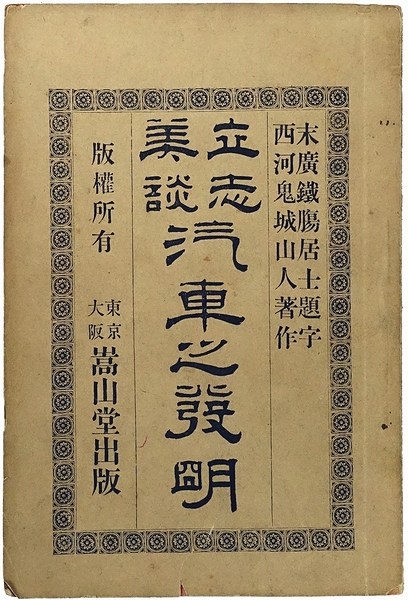 末廣鐵膓居士題字
西河鬼城山人著作
立志
美談
汽車之發明
版權所有
東京
大阪
嵩山堂出版